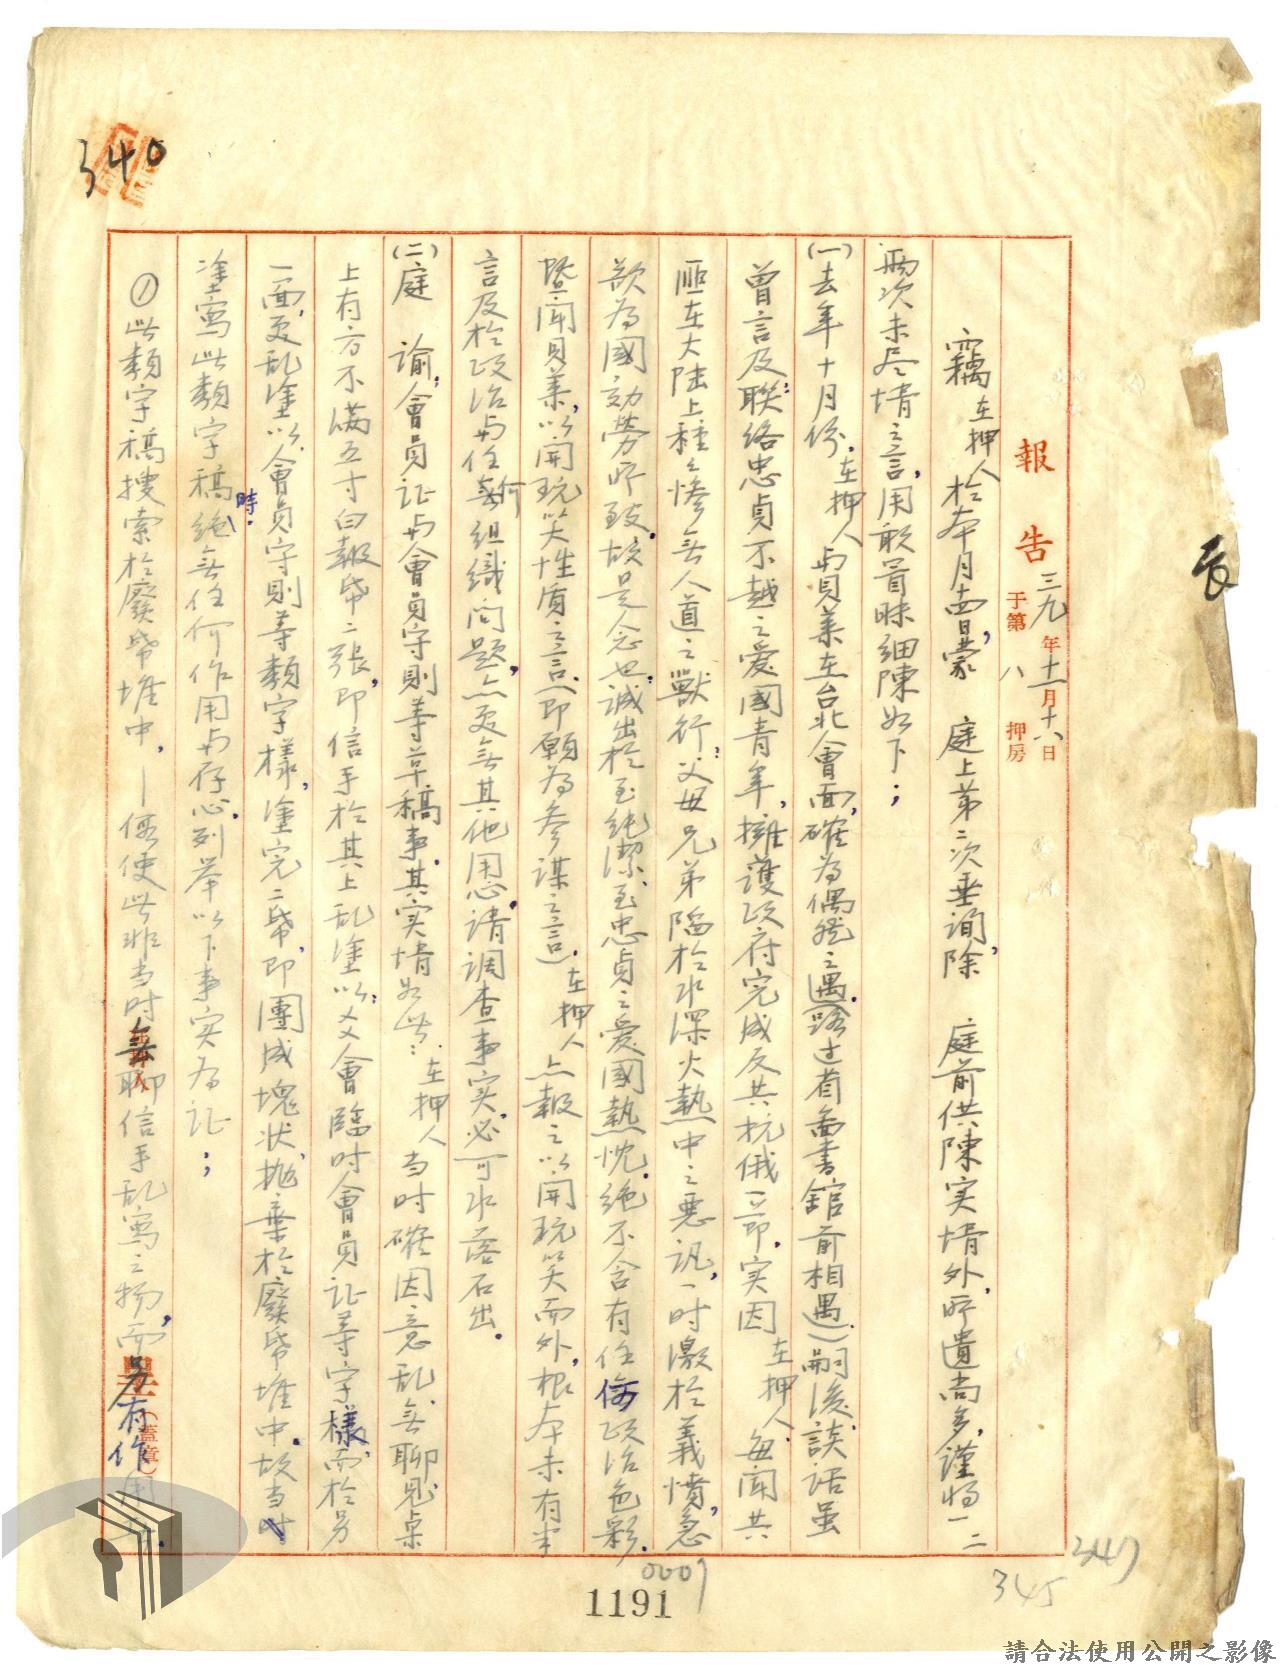 340
報告 三九年十一月十六日
于第八押房
竊在押人於本月十四日,蒙 庭上第二次垂詢,除 庭前供陳实情外,所遺尚多,謹將一二
兩次未尽情之言,用敢冒昧細陳如下;
(一)去年十月份,在押人与貝萊在台北會面,確為偶然之遇(路过商務書館前相遇)嗣後,談话虽
曾言及:聯络忠貞不越之愛國青年,擁護政府完成反共抗俄一節,实因在押人每聞共
匪在大陆上種々慘無人道之獸行;父母兄弟陷於水深火熱中之惡訊,一时激於義憤,急
欲為國効勞所致,故是念也,誠出於至純潔、至忠貞之愛國熱忱,絶不含有任何政治色彩。
暨聞貝萊,以開玩笑性質之言(即願為參謀之言),在押人亦報之以開玩笑而外,根本未有半
言及於政治与任何組織问題,亦更無其他用心,请調查事实,必可水落石出。
(二)庭 諭,會員证与會員守則等草稿事,其实情如此:在押人当时確因意乱、無聊,見桌
上有方不满五寸白報纸二張,即信手於其上乱塗以:××會臨时會員证等字様,而於另
一面,更乱塗以會員守則等類字樣,塗完二纸,即團成塊状,抛棄於廢纸堆中。故当时
塗寫此類字稿時,絶無任何作用与存心,列举以下事实为证;
①此類字稿搜索於廢纸堆中,—假使此非当时無聊信手乱寫之物,而另有作用
(蓋章)
辰
0009
1191
345
347
請合法使用公開之影像